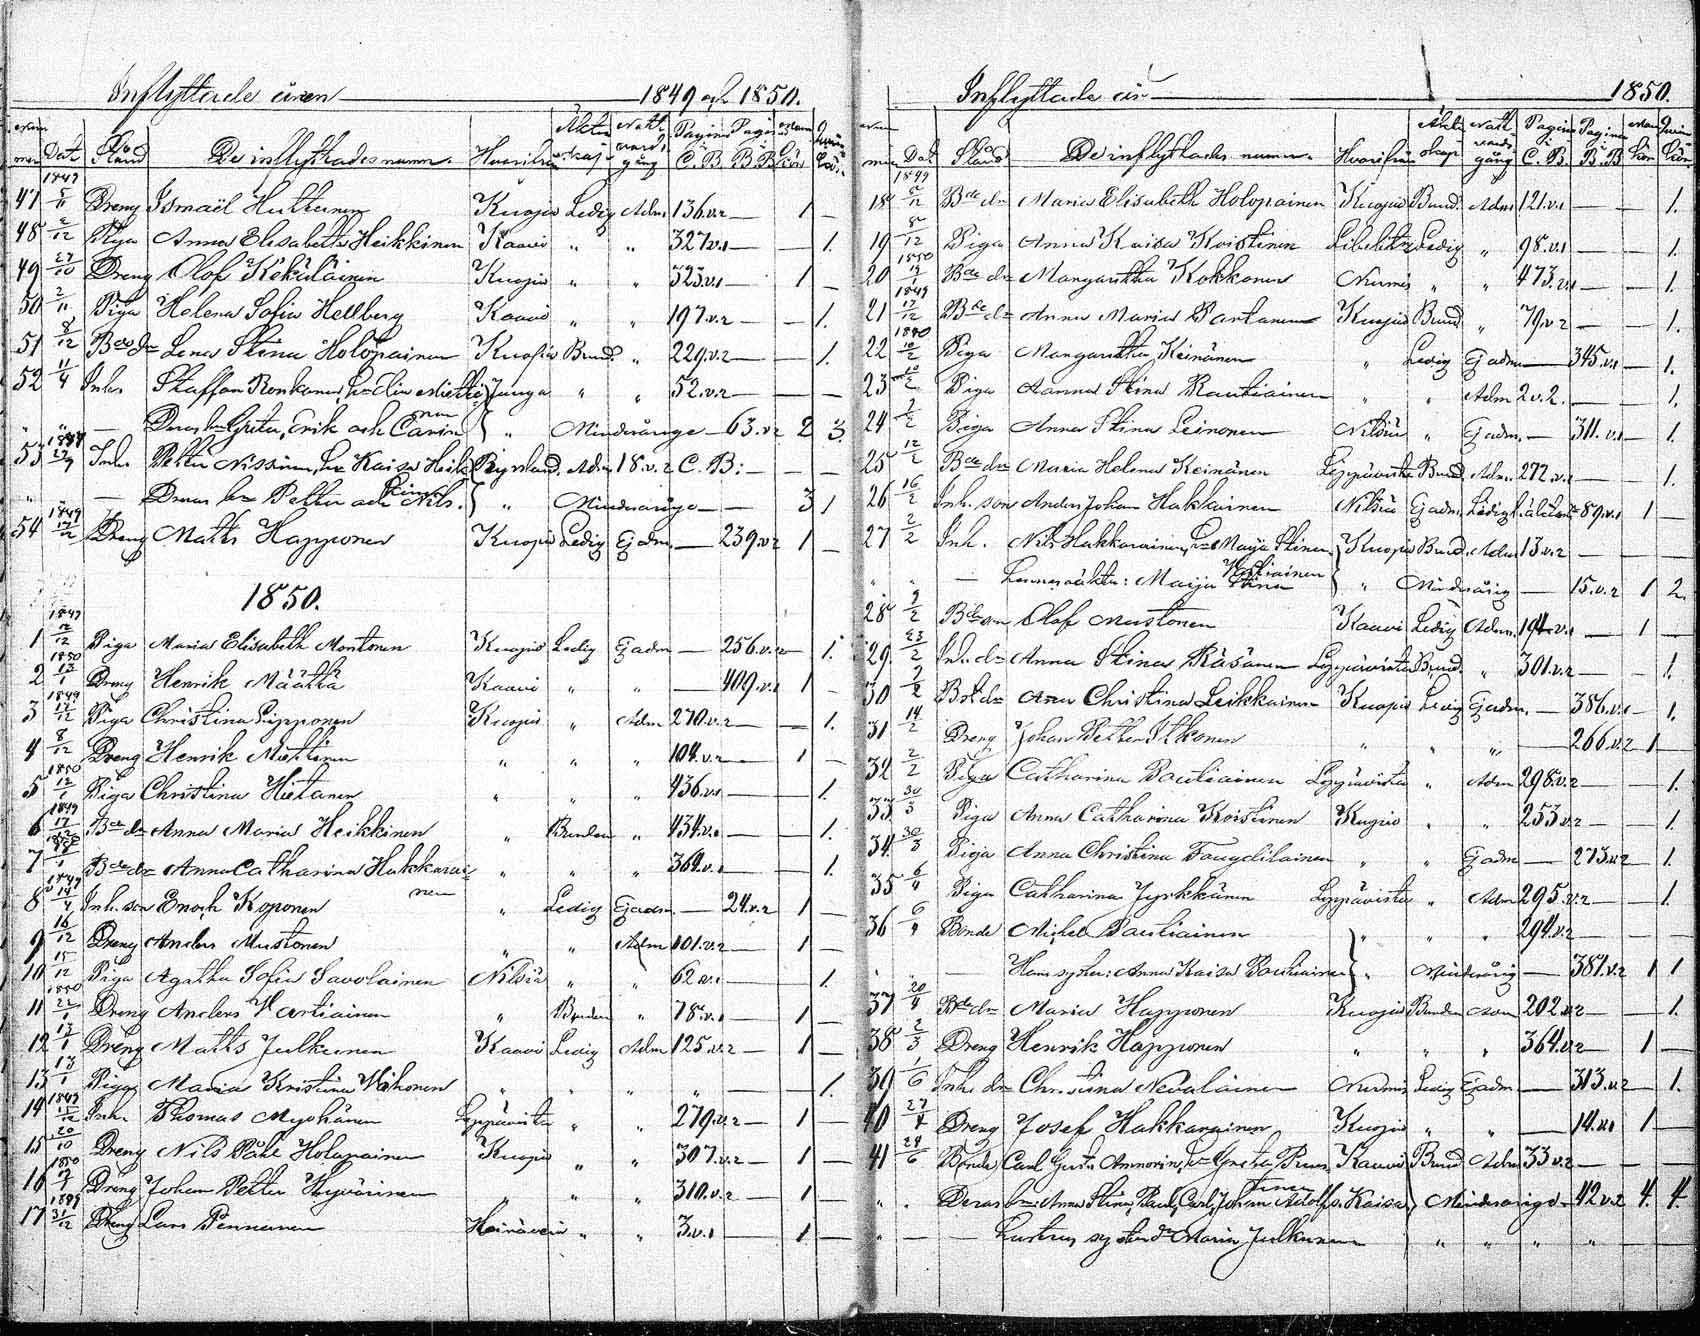 Inflyttade åren 1849 och 1850.
Dat Stånd De inflyttades namn. Hvarifrån Nattvardsgång Pagina C.B. Pagina B.B.
1849
47 5/11 Dreng Ismaël Huttunen Kuopio Ledig Adm 136.v.2 — 1 —
48 2/12 Piga Anna Elisabetha Heikkinen Kaavi " " 327.v.1 — — 1.
49 27/10 Dreng Olof Kökäläinen Kuopio " " 323.v.1 — 1 —
50 2/11 Piga Helena Sofia Hellberg Kaavi " " 197.v.2 — — 1.
51 8/12 Bde dr Lena Stina Holopainen Kuopio Bund. " 229.v.2 — — 1.
52 11/4 Inh. Staffan Ronkanen, Junga " " 52.v.2 — — —
" " — Deras bn Greta, Erik och Carin } " Minderårige — 63.v.2 2 3.
53 27/9 Inh. Petter Nissinen, hu Kaisa Heikkinen Adm. 18.v.2 C.B: — — —
" — Deras bn Petter och Nils. } " Minderårige — — 3 1
1849
54 17/12 Dreng Matts Happonen Kuopio Ledig Ej adm. — 239.v.2 1 —
1850.
1849
1 12/12 Piga Maria Elisabeth Montonen Kuopio Ledig Ej adm — 256.v.2 — 1.
1850
2 13/1 Dreng Henrik Määttä Kaavi " " — 409.v.1 1 —
1849
3 17/12 Piga Christina Lipponen Kuopio " Adm 270.v.2 — — 1.
4 8/12 Dreng Henrik Miettinen " " " 104.v.2 — 1 —
1850
5 12/1 Piga Christina Hietanen " " " 436.v.1 — — 1.
1849
6 17/12 Bde dr Anna Maria Heikkinen " Bunden " 434.v.1 — — 1.
7 Bde dr Anna Catharina Hakkarainen " " " 364.v.1 — — 1.
1849
8 Inh. son Enoch Koponen " Ledig Ej adm. — 24.v.2 1 —
9 16/12 Dreng Anders Mustonen " " Adm 101.v.2 — 1 —
10 15/12 Piga Agatha Sofia Savolainen Nilsiä " " 62.v.1 — — 1.
1850
11 22/1 Dreng Anders Vartiainen " Bunden " 78.v.1 — 1 —
12 17/1 Dreng Matts Julkunen Kaavi Ledig Adm 125.v.2 — 1 —
13 13/1 Piga Maria Kristina " " " " 1.
1849
14 15/12 Inh. Thomas Myöhänen Leppävirta " " 279.v.2 — 1 —
15 20/10 Dreng Nils Påhl Holopainen Kuopio " " 307.v.2 — 1 —
1850
16 Dreng Johan Petter Hyvärinen " " " 310.v.2 — 1 —
1849
17 31/12 Dreng Lars Pennanen Heinävesi " " 3.v.1 — 1 —
Inflyttade år 1850.
Dat Stånd De inflyttades namn. Hvarifrån Nattvardsgång Pagina C.B. Pagina B.B
1849
18 5/12 Bde dr Maria Elisabeth Holopainen Kuopio Bund. Adm 121.v.1 — — 1.
19 5/12 Piga Anna Kaisa Koistinen Libelitz Ledig " 98.v.1 — — 1.
1850
20 Bde dr Margaretha Kokkonen Nurmis " " 473.v.1 — — 1.
1849
21 17/12 Bde dr Anna Maria Partanen Kuopio Bund " 79.v.2 — — 1.
1850
22 10/2 Piga Margaretha Keinänen " Ledig Ej adm — 345.v.1 — 1.
23 10/2 Piga Hanna Stina Rautiainen " " Adm 2.v.2. — — 1.
24 Piga Anna Stina Leinonen Nilsiä " Ej adm. — 311.v.1 — 1.
25 12/2 Bde dr Maria Helena Keinänen Leppävirta Bund. Adm. 272.v.2 — — 1.
26 16/2 Inh. son Anders Johan Hakkarainen Nilsiä Ej adm. Ledig 89.v.1 1 —
27 2/2 Inh. Nils Hakkarainen, hu Maija Stina } Kuopio Bund. Adm 13.v.2 — — —
" " — Maija Stina Vartiainen } " Minderårig — 15.v.2 1 2.
28 9/2 Bde son Olof Mustonen Kaavi Ledig Adm. 194.v.1 — 1 —
29. 23/2 Inh. dr Anna Stina Räsänen Leppävirta Bund. " 301.v.2 — — 1.
30 9/2 Anna Christina Leikkainen Kuopio Ledig Ej adm. — 386.v.1 — 1.
31 14/2 Dreng Johan Petter Itkonen " " " — 266.v.2 1 —
32 2/2 Piga Catharina Pautiainen Leppävirta " Adm 298.v.2 — — 1.
33 30/3 Piga Anna Catharina Koistinen Kuopio " " 253.v.2 — — 1.
34. 30/3 Piga Anna Christina " " Ej adm — 273.v.2 — 1.
35 6/4 Piga Catharina Jyrkkänen Leppävirta " Adm 295.v.2 — — 1.
36 6/4 Bonde Michel Pautiainen } " " " 294.v.2 — — —
" " — Hans syster: Anna Kaisa Pautiainen } " Minderårig — 381.v.2 1 1
37 20/4 Bde dr Maria Happonen Kuopio Bunden Adm 202.v.2 — — 1.
38 2/3 Dreng Henrik Happonen " " " 364.v.2 — 1 —
39 1/6 Inh. dr Christina Nevalainen Nurmis Ledig Ej adm — 313.v.2 — 1.
40 27/4 Dreng Josef Hakkarainen Kuopio " " — 14.v.1 1 —
41 24/6 Bonde Carl Gust. Ammorin, hu Greta Kaavi Bund Adm 33.v.2 — — —
" . Deras bn: Anna Stina, Paul, Carl, Johan Adolf o. Kaisa } Minderårige — 42.v.2 4. 4.
" — — Hustrus syster dr Maria Julkunen " " " " — —